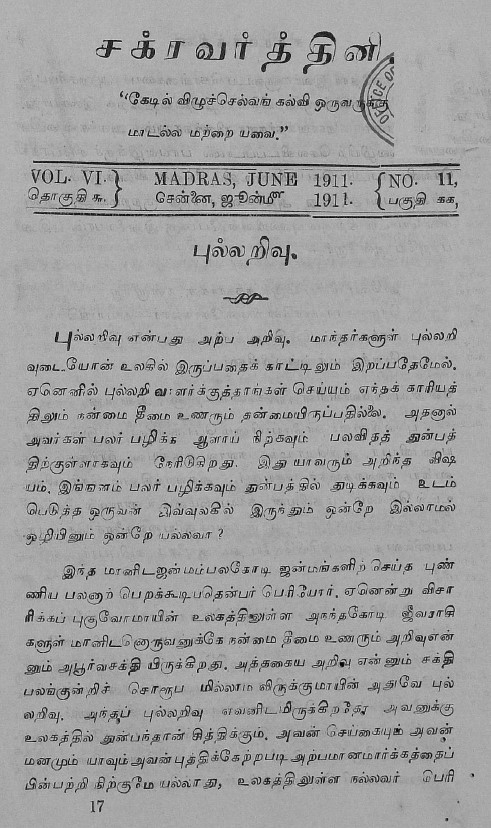 சக்ரவர்த்தினி
OFFICE OF
“கேடில் விழுச்செல்வங் கல்வி ஒருவருக்கு
மாடல்ல மற்றை யவை.”
VOL. VI. } MADRAS, JUNE 1911. { NO. 11,
தொகுதி சு. } சென்னை, ஜூன்மீ 1911. { பகுதி கக,
புல்லறிவு.
புல்லறிவு என்பது அற்ப அறிவு. மாந்தர்களுள் புல்லறி
வுடையோன் உலகில் இருப்பதைக் காட்டிலும் இறப்பதேமேல்.
ஏனெனில் புல்லறி வாளர்க்குத்தாங்கள் செய்யும் எந்தக் காரியத்
திலும் நன்மை தீமை உணரும் தன்மையிருப்பதில்லை. அதனால்
அவர்கள் பலர் பழிக்க ஆளாய் நிற்கவும் பலவிதத் துன்பத்
திற்குள்ளாகவும் நேரிடுகிறது. இது யாவரும் அறிந்த விஷ
யம். இங்ஙனம் பலர் பழிக்கவும் துன்பத்தில் துடிக்கவும் உடம்
பெடுத்த ஒருவன் இவ்வுலகில் இருந்தும் ஒன்றே இல்லாமல்
ஒழியினும் ஒன்றே யல்லவா?
இந்த மானிடஜன்மம்பலகோடி ஜன்மங்களிற் செய்த புண்
ணிய பலனாற் பெறக்கூடியதென்பர் பெரியோர். ஏனென்று விசா
ரிக்கப் புகுவோமாயின் உலகத்திலுள்ள அநந்தகோடி ஜீவராசி
களுள் மானிடனொருவனுக்கே நன்மை தீமை உணரும் அறிவுஎன்
னும் அபூர்வசக்தி யிருக்கிறது. அத்தகைய அறிவு என்னும் சக்தி
பலங்குன்றிச் சொரூப மில்லாம லிருக்குமாயின் அதுவே புல்
லறிவு. அந்தப் புல்லறிவு எவனிடமிருக்கிறதோ அவனுக்கு
உலகத்தில் துன்பந்தான் சித்திக்கும். அவன் செய்கையும் அவன்
மனமும் யாவும் அவன் புத்திக்கேற்றபடி அற்பமானமார்க்கத்தைப்
பின்பற்றி நிற்குமே யல்லாது, உலகத்திலுள்ள நல்லவர் பெரி
17